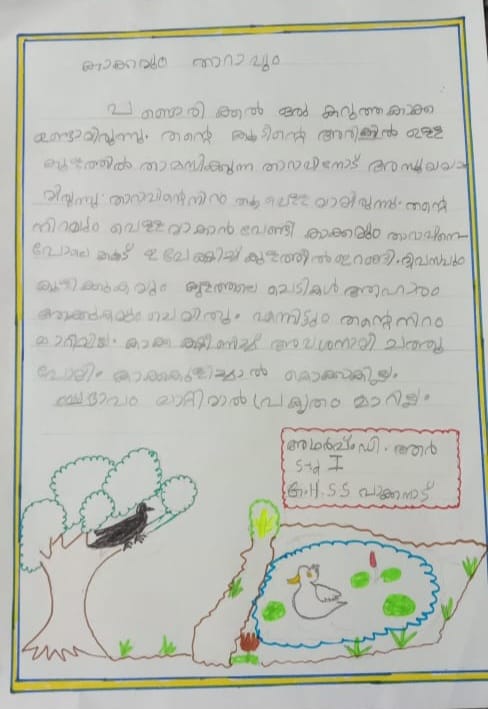 കാക്കയും താറാവും
പണ്ടൊരിക്കൽ ഒരു കറുത്തകാക്ക
ഉണ്ടായിരുന്നു. തന്റെ കൂടിന്റെ അരികിൽ ഉള്ള
കുളത്തിൽ താമസിക്കുന്ന താറാവിനോട് അസൂയയാ
യിരുന്നു. താറാവിന്റെ നിറം തൂവെള്ളയായിരുന്നു. തന്റെ
നിറവും വെള്ളയാകാൻ വേണ്ടി കാക്കയും താറാവിനെ
പോലെ കൂട് ഉപേക്ഷിച്ച് കുളത്തിൽ ഇറങ്ങി. ദിവസവും
കുളിക്കുകയും കുളത്തിലെ ചെടികൾ ആഹാരം
ആക്കുകയും ചെയ്തു. എന്നിട്ടും തന്റെ നിറം
മാറിയില്ല. കാക്ക ക്ഷീണിച്ച് അവശനായി ചത്തു
പോയി. കാക്കകുളിച്ചാൽ കൊക്കാകില്ല.
സ്വഭാവം മാറിയാൽ പ്രകൃതം മാറില്ല.
അഥർവ്. ഡി. ആർ
Std I
G.H.S.S പാക്കനാട്